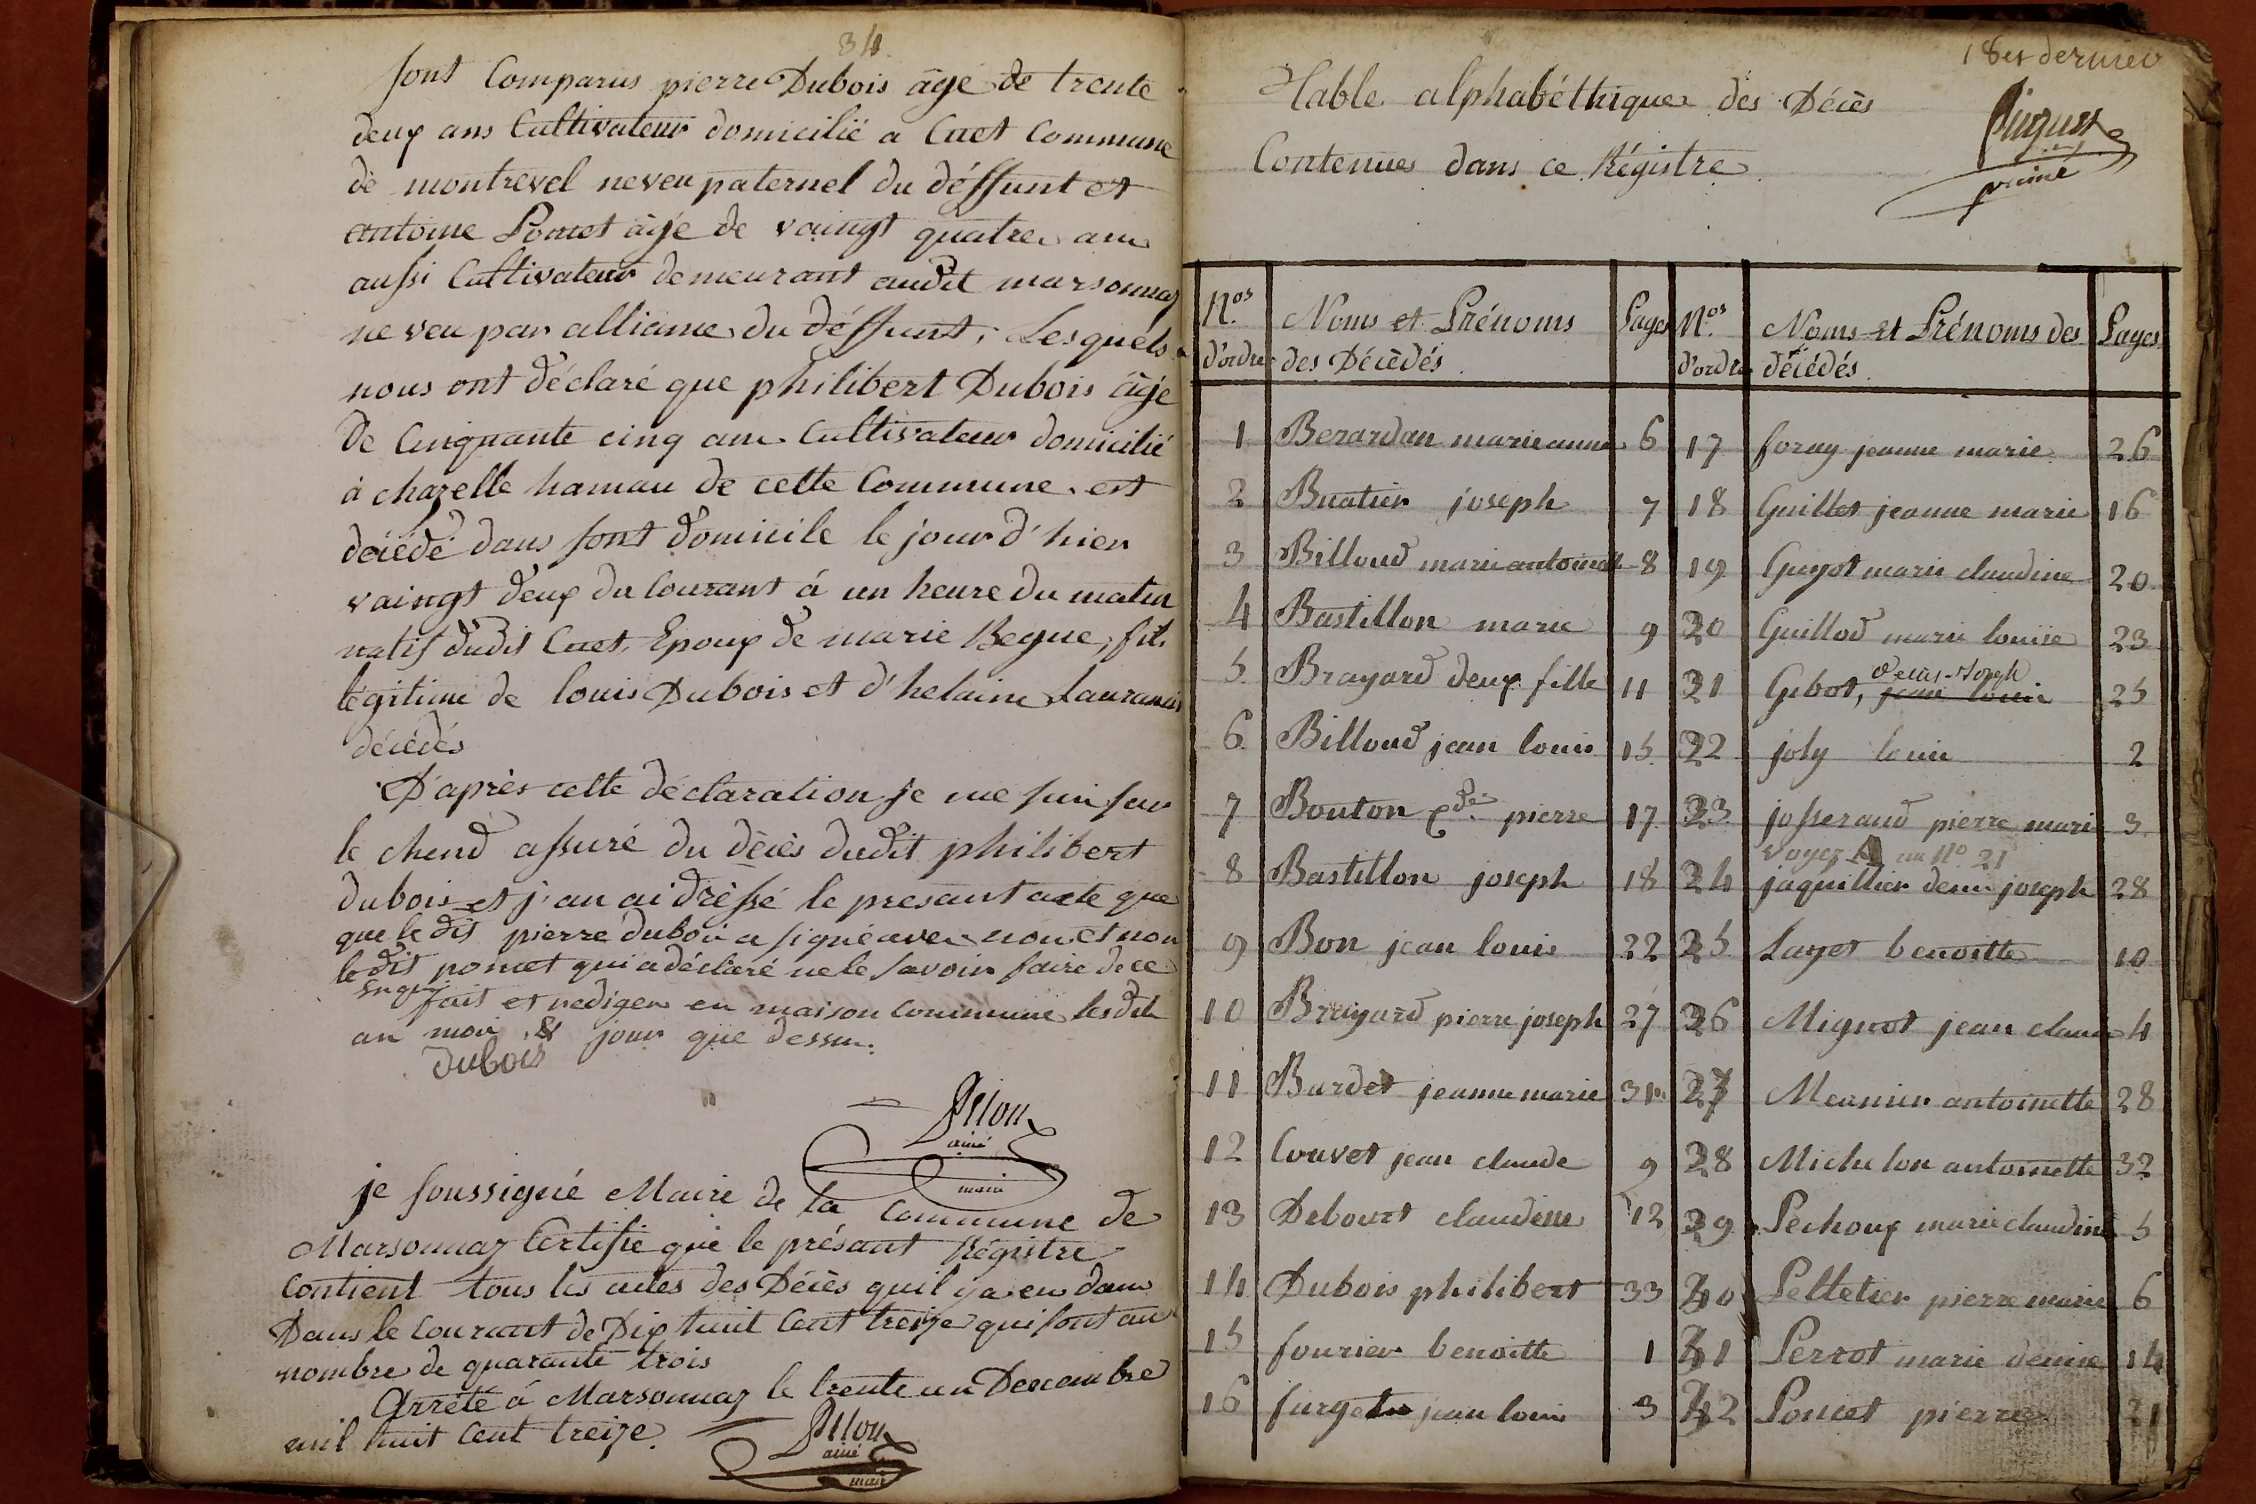 34
sont Comparus pierre Dubois âge de trente
deux ans Cultivateur domicilié a Cuet Commune
de montrevel neveu paternel du déffunt et
antoine Poncet âjé de vaingt quatre ans
aussi Cultivateur demeurant audit marsonnaz
neveu par alliance du déffunt, Lesquels
nous ont déclaré que philibert Dubois âjé
De Cinquante cinq ans Cultivateur domicilié
à chazelle hamau de cette Commune est
décédé dans sont domicile le jour d'hier
vaingt deux du Courant à un heure du matin
natif dudit Cuet, Epoux de marie Begue, fils
légitime de louis Dubois et d'helaine
décédés
D'après cette déclaration je me suis sur
le chend assuré du décès dudit philibert
dubois et j'an ai drèssé le presant acte que
que le dit pierre dubois a signé avec nous et non
le dit poncet qui a déclaré ne le savoir faire de ce
enquis
fait et rediger en maison commune les dits
an mois & jour que dessus.
dubois
Pilon
ainé
maire
je soussigné Maire de la Commune de
Marsonnaz Certifie que le présant Régistre
Contient tous les actes des Décès quil ya eu dans
Dans le courant de Dix huit Cent treize qui sont au
nombre de quarante trois
Arrêté à Marsonnaz le trente un Decembre
mil huit Cent treize.
Pilon
ainé
maire
18 et dernier
Table alphabéthique des Décès
Contenues dans ce Régistre
N.os d'ordre Noms et Prénoms des Décèdés Pages N.os d'ordre Noms et Prénoms des décédés Pages
1 Berardan marie anne 6 17 foray jeanne marie 26
2 Buatier joseph 7 18 Guillet jeanne marie 16
3 Billoud marie antoinette 8 19 Guyot marie claudine 20
4 Bastillon marie 9 20 Guillod marie louise 23
5 Brayard deux fille 11 21 Gibot, jean louis 25
6 Billoud jean louis 15 22 joly louis 2
7 Bouton pierre 17 23 josserand pierre marie 3
voyez A au N.o 21
8 Bastillon joseph 18 24 jaquillier denis joseph 28
9 Bon jean louis 22 25 Layet benoitte 10
10 Brayard pierre joseph 27 26 Mignot jean claude 4
11 Burdet jeanne marie 31 27 Meunier antoinette 28
12 Couvet jean claude 9 28 Michelon antoinette 32
13 Debourt claudine 12 29 Pechoux marie claudine 5
14 Dubois philibert 33 30 Pelletier pierre marie 6
15 fourier benoitte 1 31 Perrot marie denise 14
16 furget jean louis 3 32 Poncet pierre 21